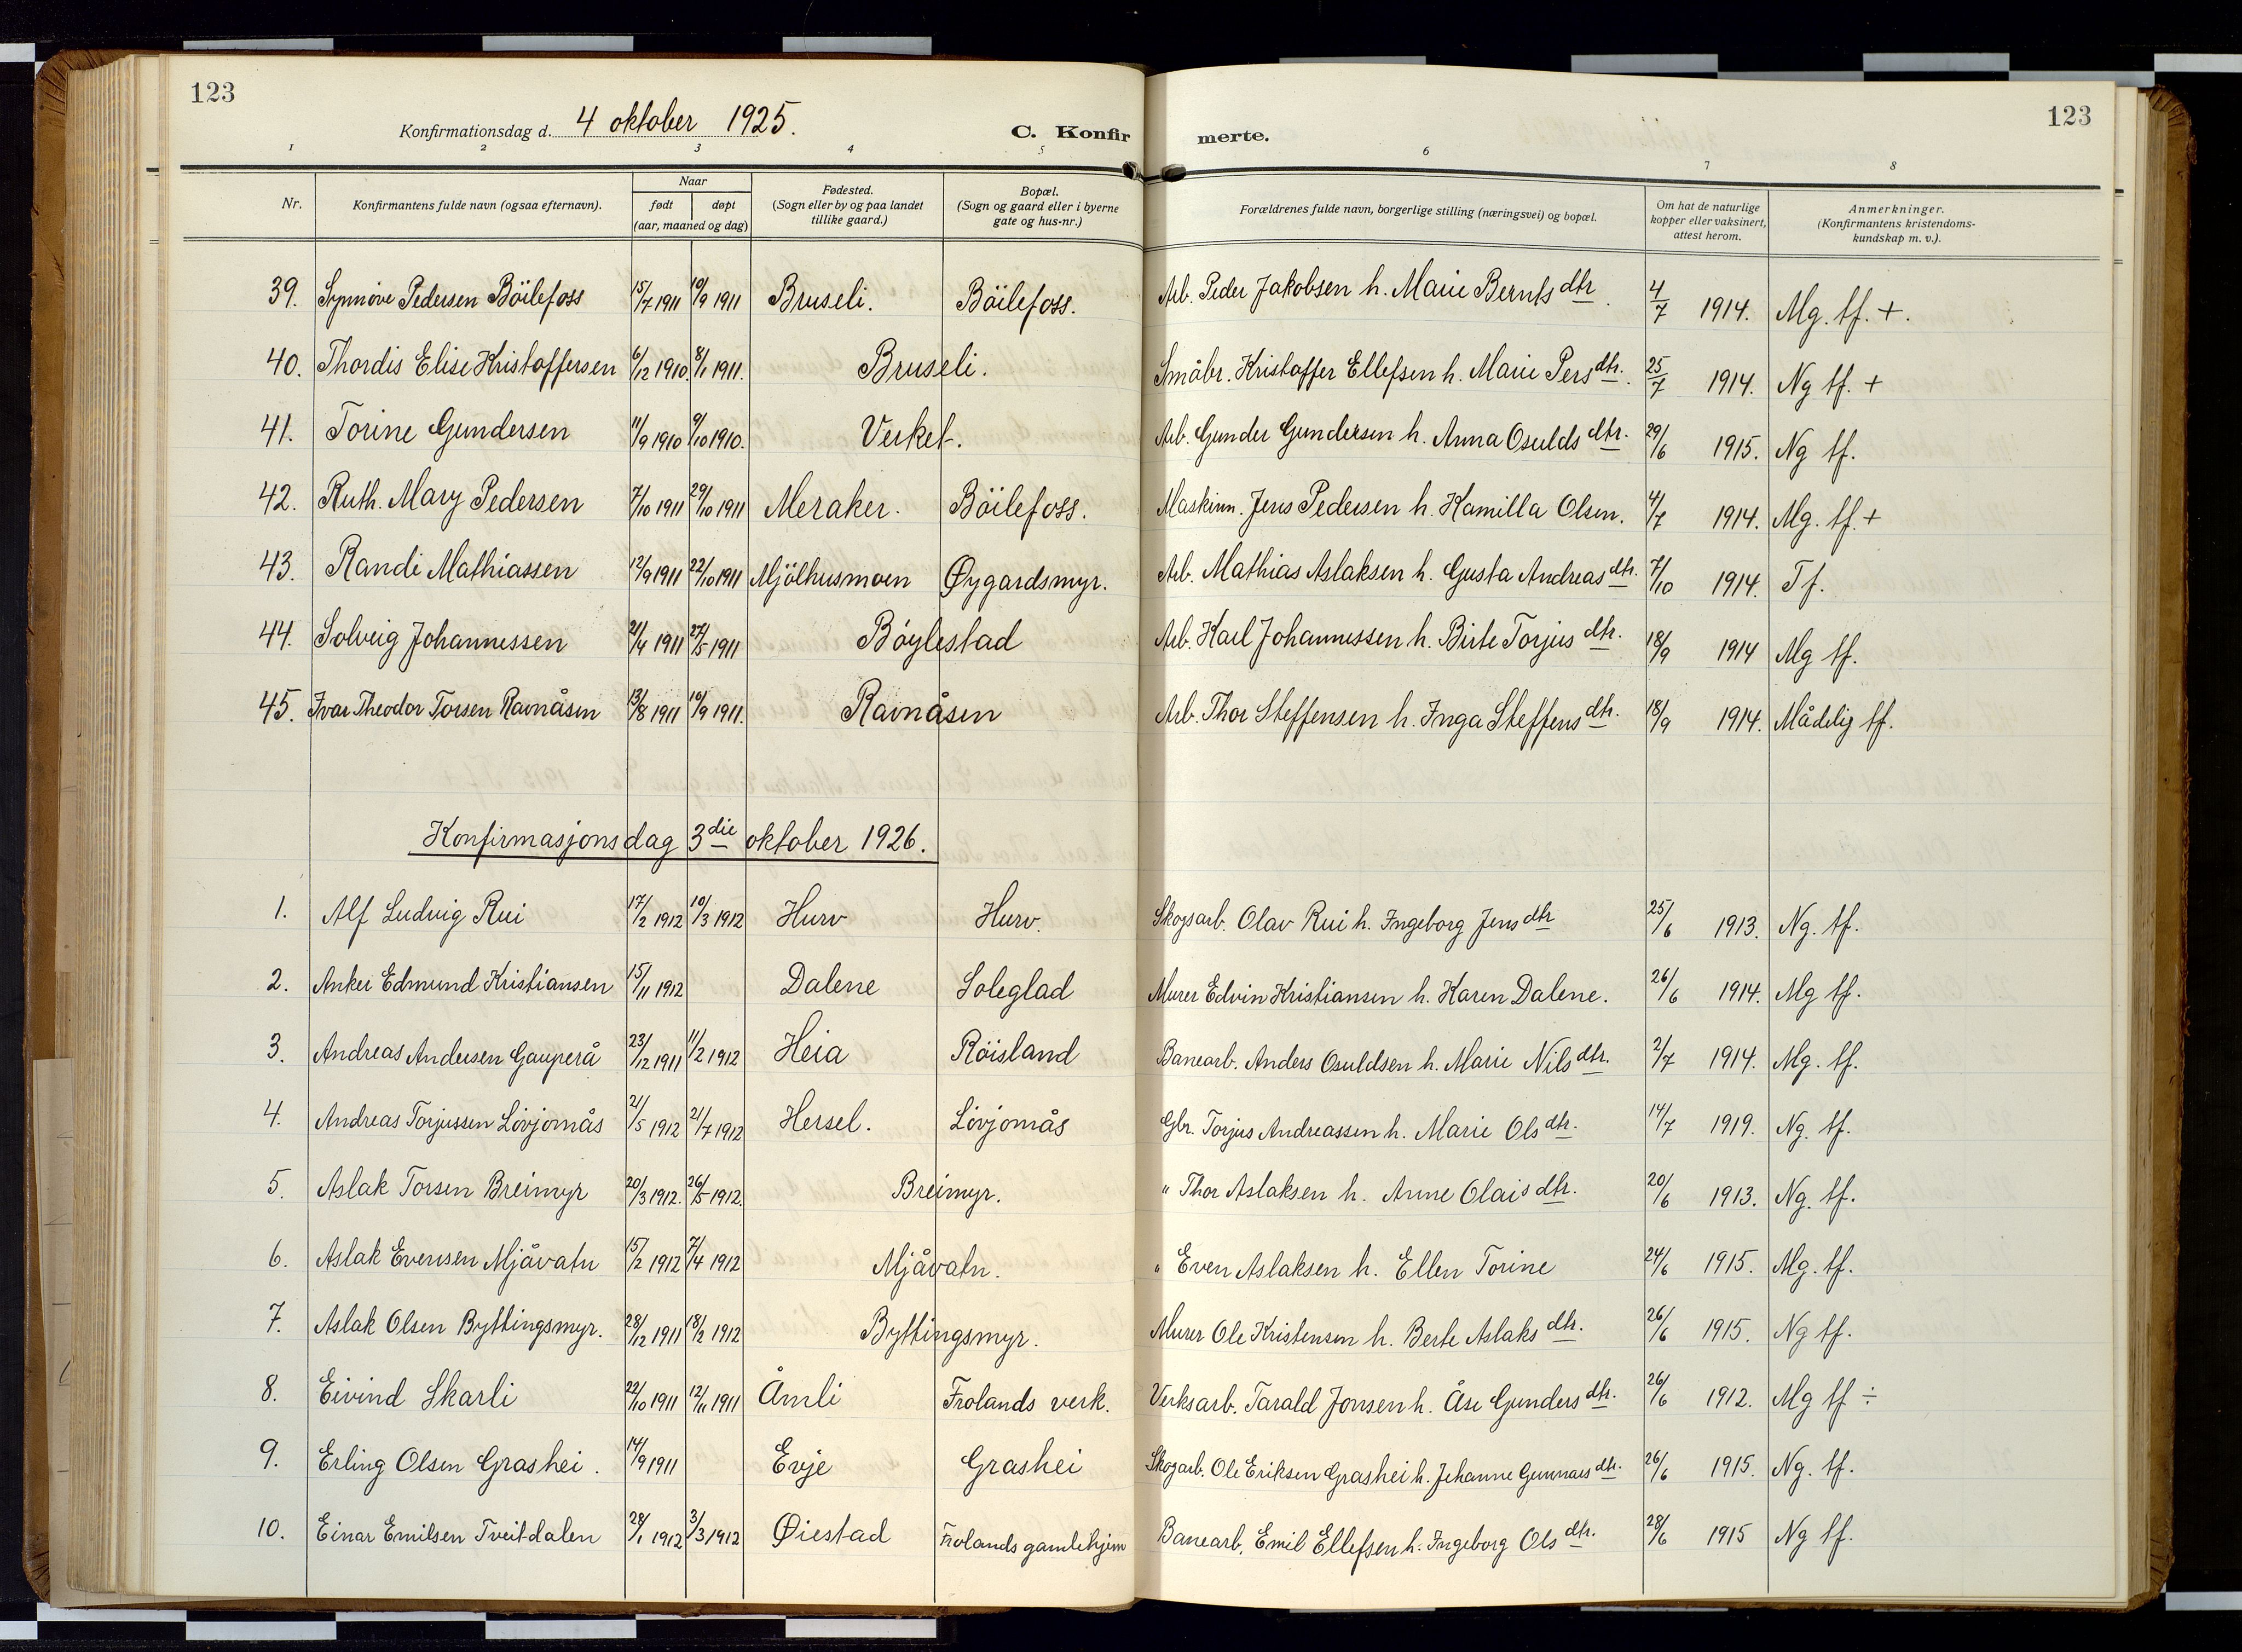 123
123
Konfirmationsdag d. 4 oktober 1925.
C. Konfir merte.
1 2 3 4 5 6 7 8
Nr.
Konfirmantens fulde navn (ogsaa efternavn).
Naar
født døpt
(aar, maaned og dag)
Fødested.
(Sogn eller by og paa landet
tillike gaard.)
Bopæl.
(Sogn og gaard eller i byerne
gate og hus-nr.)
Forældrenes fulde navn, borgerlige stilling (næringsvei) og bopæl.
Om hat de naturlige
kopper eller vaksinert,
attest herom.
Anmerkninger.
(Konfirmantens kristendoms-
kundskap m. v.).
39. Synnöve Pedersen Böilefoss 15/7 1911 10/9 1911 Bruseli. Böilefoss. Arb. Peder Jakobsen h. Marie Bernts dtr. 4/7 1914. Mg. tf. +.
40. Thordis Elise Kristoffersen 6/12 1910. 8/1 1911. Bruseli. Småbr. Kristoffer Ellefsen h. Marie Pers dtr. 25/7 1914. Ng tf. +
41. Torine Gundersen 11/9 1910 9/10 1910. Verket. Arb. Gunder Gundersen h. Anna Osulds dtr. 29/6 1915. Ng tf.
42. Ruth. Mary Pedersen 7/10 1911 29/10 1911 Meraker. Böilefoss. Maskinn. Jens Pedersen h. Kamilla Olsen. 4/7 1914. Mg. tf. +
43. Randi Mathiassen 12/9 1911 22/10 1911 Mjölhusmoen Øygardsmyr. Arb. Mathias Aslaksen h. Gusta Andreas dtr. 7/10 1914. Tf.
44. Solveig Johannessen 21/4 1911 27/5 1911 Böylestad Arb. Karl Johannessen h. Birte Torjus dtr. 18/9 1914 Mg tf.
45. Ivar Theodor Torsen Ravnåsen 13/8 1911 10/9 1911. Ravnåsen Arb. Thor Steffensen h. Inga Steffens dtr. 18/9 1914. Mådelig tf.
Konfirmasjonsdag 3die oktober 1926.
1. Alf Ludvig Rui 17/2 1912 10/3 1912 Hurv Hurv. Skogsarb. Olav Rui h. Ingeborg Jens dtr 25/6 1913. Ng. tf.
2. Anker Edmund Kristiansen 15/11 1912 Dalene Soleglad Murer Edvin Kristiansen h. Karen Dalene. 26/6 1914. Mg tf.
3. Andreas Andersen Gauperå 23/12 1911 11/2 1912 Heia Röisland Banearb. Anders Osuldsen h. Marie Nils dtr. 2/7 1914. Mg. tf.
4. Andreas Torjussen Lövjomås 21/5 1912 21/7 1912 Hersel. Lövjomås Gbr. Torjus Andreassen h. Marie Ols dtr. 14/7 1919. Ng. tf.
5. Aslak Torsen Breimyr 20/3 1912. 26/5 1912. Breimyr. " Thor Aslaksen h. Anne Olais dtr. 20/6 1913. Ng. tf.
6. Aslak Evensen Mjåvatn 15/2 1912 7/4 1912 Mjåvatn. " Even Aslaksen h. Ellen Torine 24/6 1915. Mg. tf.
7. Aslak Olsen Byttingsmyr. 28/12 1911 18/2 1912 Byttingsmyr. Murer Ole Kristensen h. Berte Aslaks dtr. 26/6 1915. Ng tf.
8. Eivind Skarli 22/10 1911 12/11 1911 Åmli Frolands verk. Verksarb. Tarald Jonsen h. Åse Gunders dtr. 26/6 1912. Mg tf ÷
9. Erling Olsen Grashei. 14/9 1911 Evje Grashei Skogarb. Ole Eriksen Grashei h. Jehanne Gunnars dtr. 26/6 1915. Ng. tf.
10. Einar Emilsen Tveitdalen 28/1 1912 3/3 1912 Øiestad Frolands gamlehjem Banearb. Emil Ellefsen h. Ingeborg Ols dtr. 28/6 1915 Ng tf.